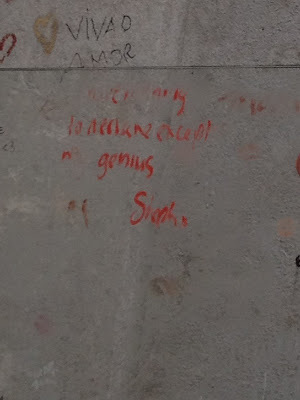 VIVA O
AMOR
to declare except
genius
Steph x